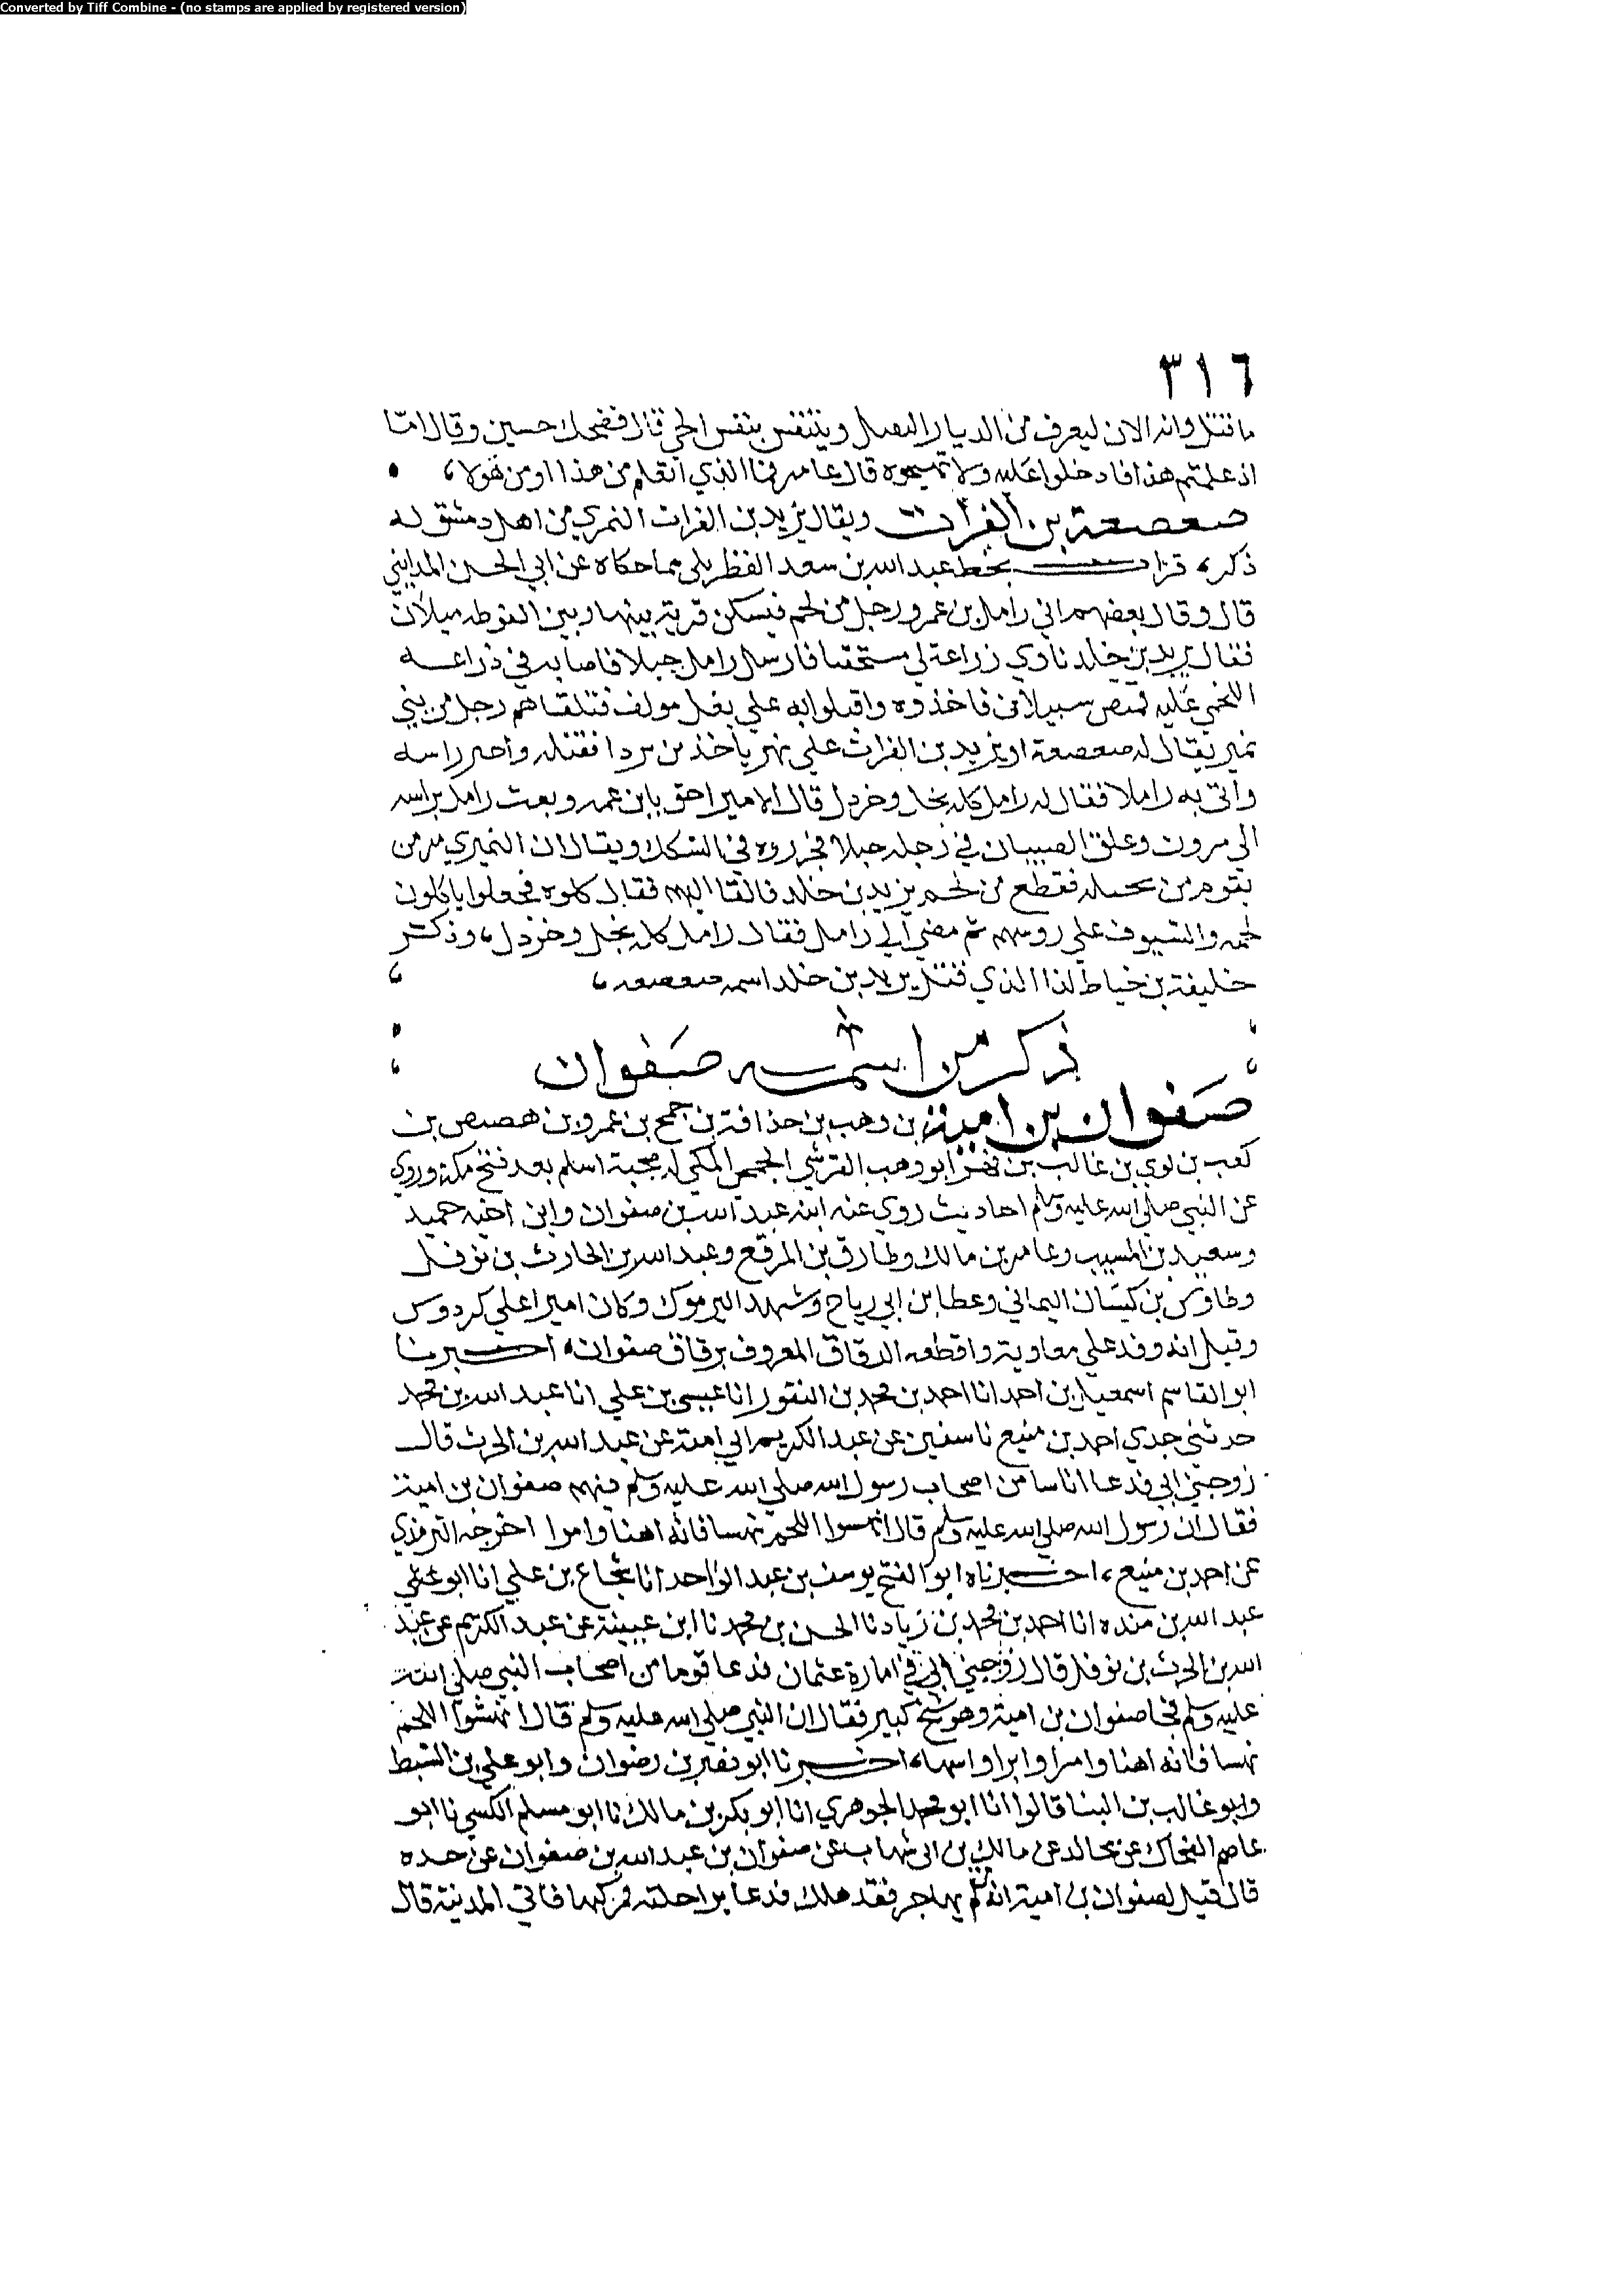 Converted by Tiff Combine - (no stamps are applied by registered version)
٣١٦
ما قتل وانه الان ليعرف من الديار البصل ويتنفس بنفس الحي قال فضحك حسين وقال اما
اذ علمتم هذا فادخلوا عليه ولا تهيجوه قال عامر فما الذي انقلم من هذا او من هولا
صعصعة بن الفرات ويقال يزيد بن الفرات النمري من اهل دمشق له
ذكر، قرات بخط عبد الله بن سعد القطربلي مما حكاه عن ابي الحسن المدايني
قال وقال بعضهم اتي رامل بن عمرو رجل من لخم فيسكن قرية بينها وبين الغوطه ميلان
فقال يزيد بن خلد ناوي زراعة لي مستخفيا فارسل رامل خيلا فاصابه في ذراعه
اللخمي عليه قميص سبيلاني فاخذوه واقبلوا به علي بغل مولف فتلقاهم رجل من بني
نمير يقال له صعصعة او يزيد بن الفرات علي نهر ياخذ من بردا فقتله واحتز راسه
واتي به راملا فقال له رامل كله بخل وخردل قال الامير احق بابن عمه وبعث رامل براسه
الي مروان وعلق الصبيان في رجله حبلا فجرروه في السكك ويقال ان النميري مر من
بقوم من فقطع من لحم يزيد بن خلد فالقا اليهم فقال كلوه فجعلوا ياكلون
لحمه والسيوف علي روسهم ثم مضي الي رامل فقال رامل كله بخل وخردل، وذكر
خليفة بن خياط ان الذي قتل يزيد بن خلد اسمه صعصعه،
ذكر من اسمه صفوان
صفوان بن امية بن وهب بن حذافة بن جمح بن عمرو بن هصيص بن
كعب بن لوي بن غالب بن فهر ابو وهب القرشي الجمحي المكي له صحبة اسلم بعد فتح مكة وروي
عن النبي صلي الله عليه وسلم احاديث روي عنه ابنه عبد الله بن صفوان وابن اخته حميد
وسعيد بن المسيب وعامر بن مالك وطارق بن المرقع وعبد الله بن الحارث بن نوفل
وطاوس بن كيسان اليماني وعطا بن ابي رباح وشهد اليرموك وكان اميرا علي كردوس
وقيل انه وفد علي معاوية واقطعه الزقاق المعروف بزقاق صفوان، اخبرنا
ابو القاسم اسمعيل بن احمد انا احمد بن محمد بن النقور انا عيسي بن علي انا عبد الله بن محمد
حدثني جدي احمد بن منيع نا سفين عن عبد الكريم ابي امية عن عبد الله بن الحرث قال
زوجني ابي فدعا اناسا من اصحاب رسول الله صلي الله عليه وسلم فيهم صفوان بن امية
فقال ان رسول الله صلي الله عليه وسلم قال انهسوا اللحم نهسا فانه اهنا وامرا اخرجه الترمذي
عن احمد بن منيع، اخبرناه ابو الفتح يوسف بن عبد الواحد انا شجاع بن علي انا ابو علي
عبد الله بن منده انا احمد بن محمد بن زياد نا الحسن بن محمد نا ابن عيينة عن عبد الكريم عن عبد
الله بن الحرث بن نوفل قال زوجني ابي في امارة عثمان فدعا قوما من اصحاب النبي صلي الله
عليه وسلم فجا صفوان بن امية وهو شيخ كبير فقال ان النبي صلي الله عليه وسلم قال انهشوا اللحم
نهسا فانه اهنا وامرا وابرا واسها، اخبرنا ابو نصر بن رضوان وابو علي بن السبط
وابو غالب بن البنا قالوا انا ابو محمد الجوهري انا ابو بكر بن مالك نا ابو مسلم الكسي نا ابو
عاصم الضحاك عن مخالد عن مالك بن ابي شهاب عن صفوان بن عبد الله بن صفوان عن جده
قال قيل لصفوان بن امية انه لم يهاجر فقد هلك فدعا براحلته فركبها فاتي المدينة قال